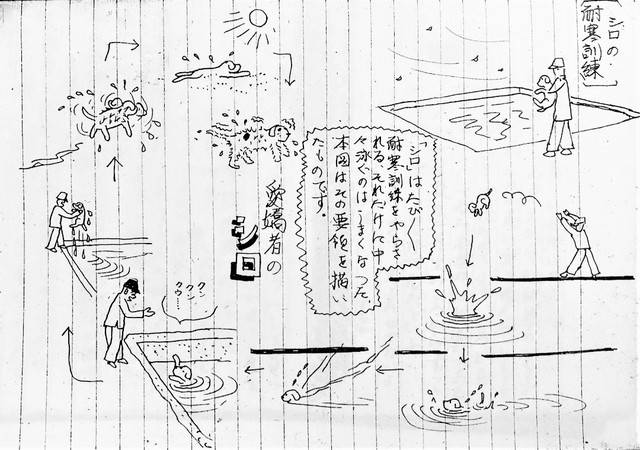 シロの
耐寒訓練
「シロ」はたび〱
耐寒訓練をやらさ
れる。それだけに中
々泳ぐのはうまくなった。
本図はその要領を描い
たものです。
愛嬌者の
シロ
クン
クン
クウ…